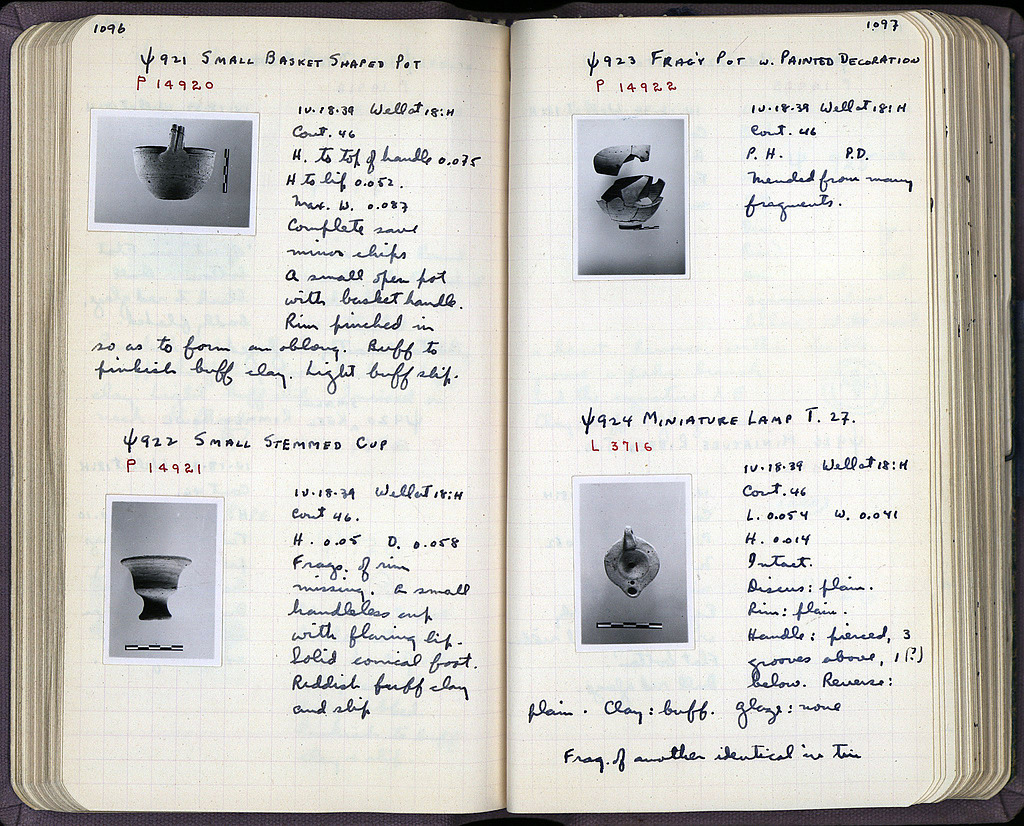 1096
ψ921 SMALL BASKET SHAPED POT
P 14920
IV·18·39 Well at 18:H
Cont. 46
H. to top of handle 0.075
H to lip 0.052.
Max. W. 0.087
Complete save
minor chips
A small open pot
with basket handle.
Rim pinched in
so as to form an oblong. Buff to
pinkish buff clay. Light buff slip.
ψ922 SMALL STEMMED CUP
P 14921
IV·18·39 Well at 18:H
Cont 46.
H. 0.05 D. 0.058
Frags. of rim
missing. A small
handleless cup
with flaring lip.
Solid conical foot.
Reddish buff clay
and slip
1097
ψ923 FRAG'Y POT W. PAINTED DECORATION
P 14922
IV·18·39 Well at 18:H
Cont. 46
P.H. P.D.
Mended from many
fragments.
ψ924 MINIATURE LAMP T. 27.
L 3716
IV·18·39 Well at 18:H
Cont. 46
L. 0.054 W. 0.041
H. 0.014
Intact.
Discus: plain.
Rim: plain.
Handle: pierced, 3
grooves above, 1(?)
below. Reverse:
plain. Clay: buff. Glaze: none
Frag. of another identical in tin